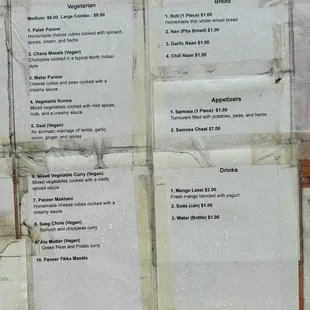 Vegetarian
Medium: $8.00 Large Combo : $9.00
1. Palak Paneer
Homemade cheese cubes cooked with spinach,
spices, cream, and herbs
2. Chana Masala (Vegan)
Chickpeas cooked in a typical North Indian
style
3. Matar Paneer
Cheese cubes and peas cooked with a
creamy sauce
4. Vegetable Korma
Mixed vegetables cooked with mild spices,
nuts, and a creamy sauce
5. Daal (Vegan)
An aromatic marriage of lentils, garlic,
onion, ginger, and spices
6. Mixed Vegetable Curry (Vegan)
Mixed vegetables cooked with a mildly
spiced sauce
7. Paneer Makhani
Homemade cheese cubes cooked with a
creamy sauce
8. Saag Chole (Vegan)
Spinach and chickpeas curry
9. Alu Mutter (Vegan)
Green Peas and Potato curry
10. Paneer Tikka Masala
Bread
1. Roti (1 Piece) $1.00
Homemade thin whole wheat bread
2. Nan (Pita Bread) $1.00
3. Garlic Naan $1.50
4. Chili Naan $1.50
Appetizers
1. Samosa (1 Piece) $1.50
Turnovers filled with potatoes, peas, and herbs
2. Samosa Chaat $7.00
Drinks
1. Mango Lassi $2.00
Fresh mango blended with yogurt
2. Soda (can) $1.00
3. Water (Bottle) $1.00